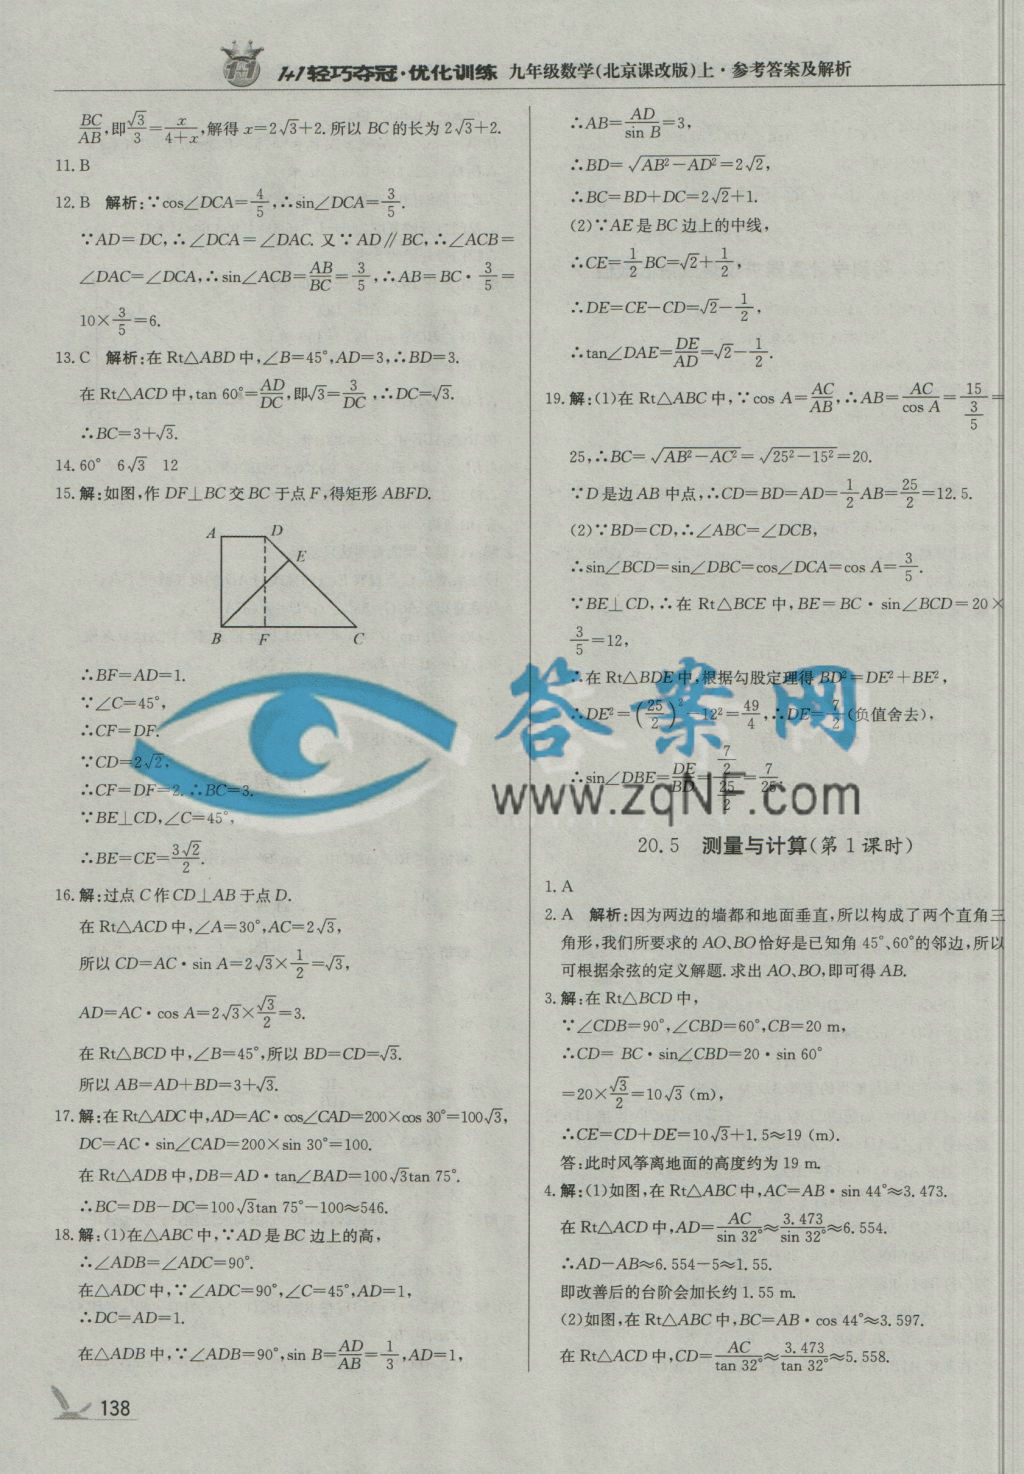 1+1轻巧夺冠·优化训练 九年级数学(北京课改版)上·参考答案及解析
BC/AB,即√3/3=x/(4+x),解得 x=2√3+2.所以 BC的长为 2√3+2.
11. B
12. B 解析:∵cos∠DCA=4/5,∴sin∠DCA=3/5.
∵AD=DC,∴∠DCA=∠DAC.又∵AD∥BC,∴∠ACB=
∠DAC=∠DCA,∴sin∠ACB=AB/BC=3/5,∴AB=BC·3/5=
10×3/5=6.
13. C 解析:在 Rt△ABD 中,∠B=45°,AD=3,∴BD=3.
在 Rt△ACD 中,tan 60°=AD/DC,即√3=3/DC,∴DC=√3.
∴BC=3+√3.
14. 60° 6√3 12
15. 解:如图,作 DF⊥BC 交 BC 于点 F,得矩形 ABFD.
A D
E
B F C
∴BF=AD=1.
∵∠C=45°,
∴CF=DF.
∵CD=2√2,
∴CF=DF=2.∴BC=3.
∵BE⊥CD,∠C=45°,
∴BE=CE=3√2/2.
16. 解:过点 C 作 CD⊥AB 于点 D.
在 Rt△ACD 中,∠A=30°,AC=2√3,
所以 CD=AC·sin A=2√3×1/2=√3,
AD=AC·cos A=2√3×√3/2=3.
在 Rt△BCD 中,∠B=45°,所以 BD=CD=√3.
所以 AB=AD+BD=3+√3.
17. 解:在 Rt△ADC 中,AD=AC·cos∠CAD=200×cos 30°=100√3,
DC=AC·sin∠CAD=200×sin 30°=100.
在 Rt△ADB 中,DB=AD·tan∠BAD=100√3tan 75°.
∴BC=DB-DC=100√3tan 75°-100≈546.
18. 解:(1)在△ABC 中,∵AD 是 BC 边上的高,
∴∠ADB=∠ADC=90°.
在△ADC 中,∵∠ADC=90°,∠C=45°,AD=1,
∴DC=AD=1.
在△ADB 中,∵∠ADB=90°,sin B=AD/AB=1/3,AD=1,
138
∴AB=AD/sin B=3,
∴BD=√(AB²-AD²)=2√2,
∴BC=BD+DC=2√2+1.
(2)∵AE 是 BC 边上的中线,
∴CE=1/2BC=√2+1/2,
∴DE=CE-CD=√2-1/2,
∴tan∠DAE=DE/AD=√2-1/2.
19. 解:(1)在 Rt△ABC 中,∵cos A=AC/AB,∴AB=AC/cos A=15/(3/5)=
25,∴BC=√(AB²-AC²)=√(25²-15²)=20.
∵D 是边 AB 中点,∴CD=BD=AD=1/2AB=25/2=12.5.
(2)∵BD=CD,∴∠ABC=∠DCB,
∴sin∠BCD=sin∠DBC=cos∠DCA=cos A=3/5.
∵BE⊥CD,∴在 Rt△BCE 中,BE=BC·sin∠BCD=20×
3/5=12,
∴在 Rt△BDE 中,根据勾股定理得 BD²=DE²+BE²,
∴DE²=(25/2)²-12²=49/4,∴DE=7/2(负值舍去),
∴sin∠DBE=DE/BD=(7/2)/(25/2)=7/25.
答案网
www.zqNF.com
20.5 测量与计算(第1课时)
1. A
2. A 解析:因为两边的墙都和地面垂直,所以构成了两个直角三
角形,我们所要求的 AO、BO恰好是已知角 45°、60°的邻边,所以
可根据余弦的定义解题.求出 AO、BO,即可得 AB.
3. 解:在 Rt△BCD 中,
∵∠CDB=90°,∠CBD=60°,CB=20 m,
∴CD= BC·sin∠CBD=20·sin 60°
=20×√3/2=10√3 (m),
∴CE=CD+DE=10√3+1.5≈19 (m).
答:此时风筝离地面的高度约为 19 m.
4. 解:(1)如图,在 Rt△ABC 中,AC=AB·sin 44°≈3.473.
在 Rt△ACD 中,AD=AC/sin 32°≈3.473/sin 32°≈6.554.
∴AD-AB≈6.554-5≈1.55.
即改善后的台阶会加长约 1.55 m.
(2)如图,在 Rt△ABC 中,BC=AB·cos 44°≈3.597.
在 Rt△ACD 中,CD=AC/tan 32°≈3.473/tan 32°≈5.558.